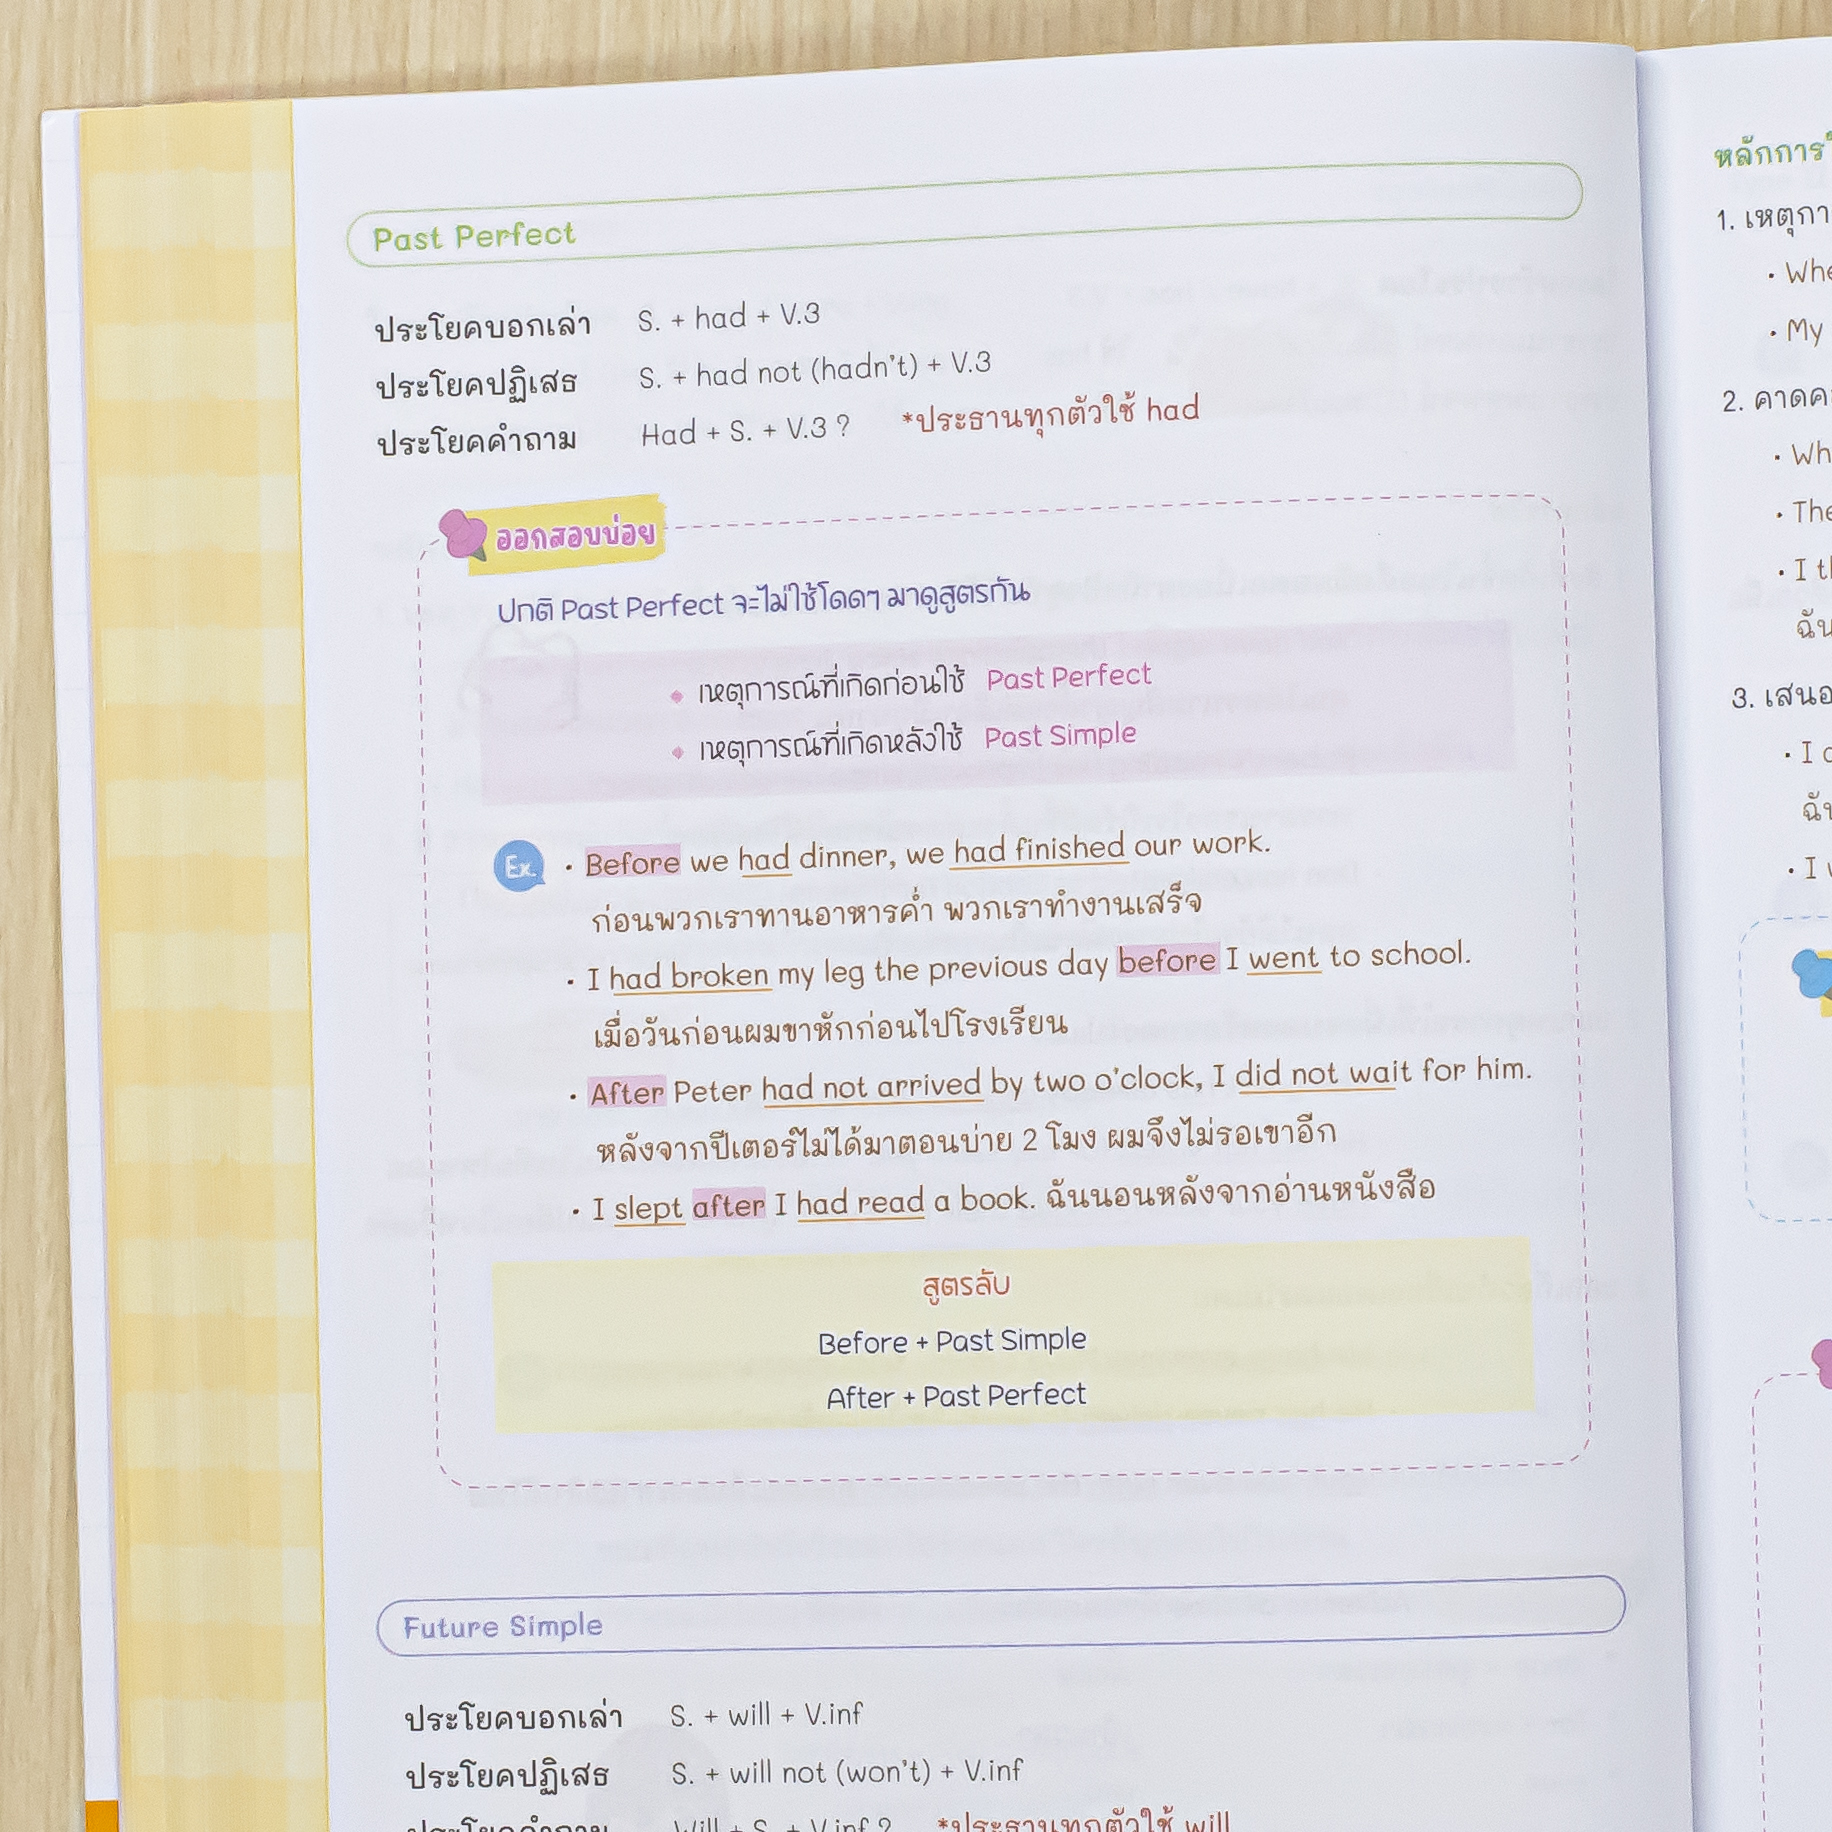 Past Perfect
ประโยคบอกเล่า S. + had + V.3
ประโยคปฏิเสธ S. + had not (hadn't) + V.3
ประโยคคำถาม Had + S. + V.3 ? *ประธานทุกตัวใช้ had
ออกสอบบ่อย
ปกติ Past Perfect จะไม่ใช้โดดๆ มาดูสูตรกัน
• เหตุการณ์ที่เกิดก่อนใช้ Past Perfect
• เหตุการณ์ที่เกิดหลังใช้ Past Simple
Ex. • Before we had dinner, we had finished our work.
ก่อนพวกเราทานอาหารค่ำ พวกเราทำงานเสร็จ
• I had broken my leg the previous day before I went to school.
เมื่อวันก่อนผมขาหักก่อนไปโรงเรียน
• After Peter had not arrived by two o'clock, I did not wait for him.
หลังจากปีเตอร์ไม่ได้มาตอนบ่าย 2 โมง ผมจึงไม่รอเขาอีก
• I slept after I had read a book. ฉันนอนหลังจากอ่านหนังสือ
สูตรลับ
Before + Past Simple
After + Past Perfect
Future Simple
ประโยคบอกเล่า S. + will + V.inf
ประโยคปฏิเสธ S. + will not (won't) + V.inf
ประโยคคำถาม Will + S. + V.inf ? *ประธานทุกตัวใช้ will
หลักการ
1.
•
• My
2.
•
•
• I
3.
• I
• I